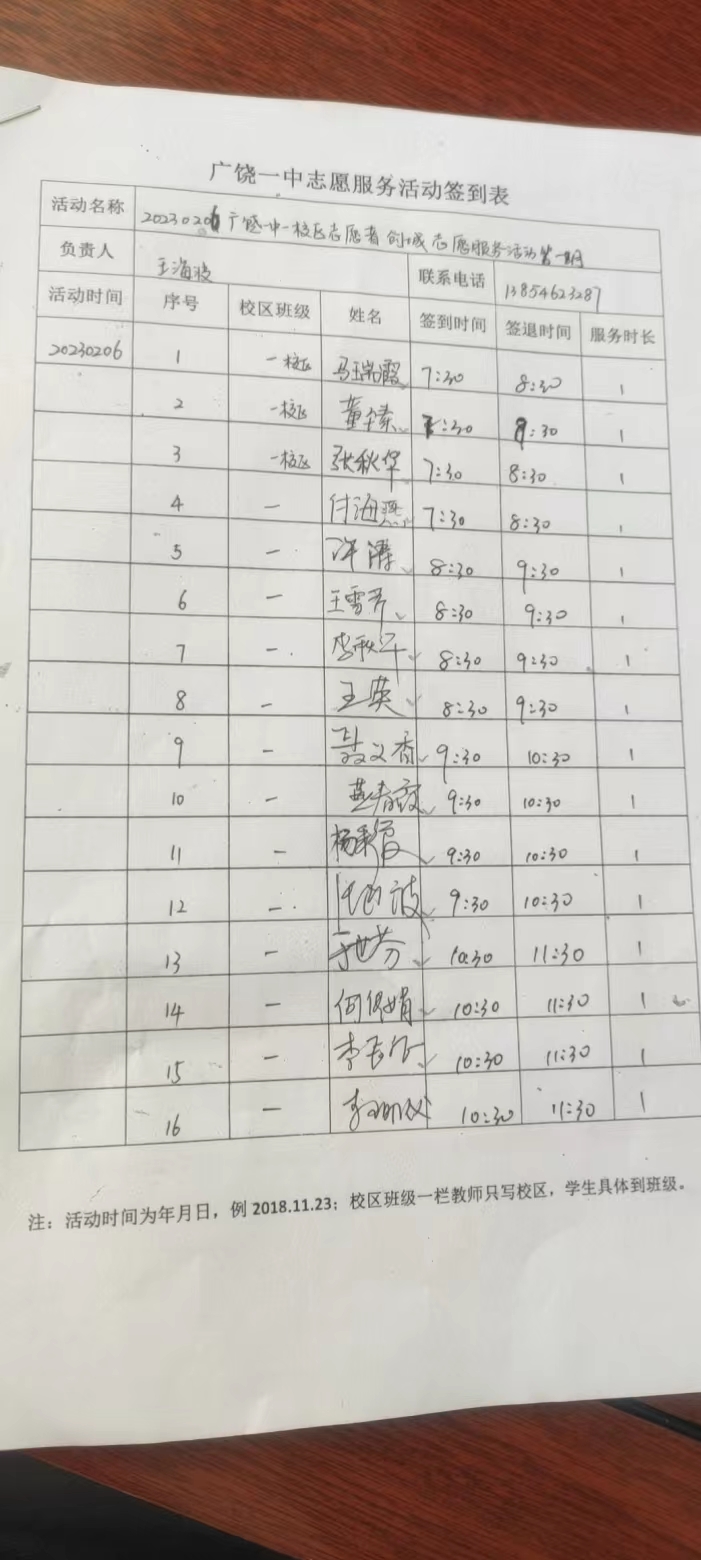 广饶一中志愿服务活动签到表
活动名称 20230206广饶一中一校区志愿者创城志愿服务活动第一期
负责人 王海波 联系电话 13854623287
活动时间 序号 校区班级 姓名 签到时间 签退时间 服务时长
20230206 1 一校区 马瑞霞 7:30 8:30 1
2 一校区 董 7:30 8:30 1
3 一校区 张秋华 7:30 8:30 1
4 一 付海燕 7:30 8:30 1
5 一 许涛 8:30 9:30 1
6 一 王雪芹 8:30 9:30 1
7 一 李秋 8:30 9:30 1
8 一 王英 8:30 9:30 1
9 一 聂文香 9:30 10:30 1
10 一 燕春霞 9:30 10:30 1
11 一 杨 9:30 10:30 1
12 一 9:30 10:30 1
13 一 于世芬 10:30 11:30 1
14 一 何 娟 10:30 11:30 1
15 一 李 10:30 11:30 1
16 一 李 10:30 11:30 1
注：活动时间为年月日，例 2018.11.23；校区班级一栏教师只写校区，学生具体到班级。